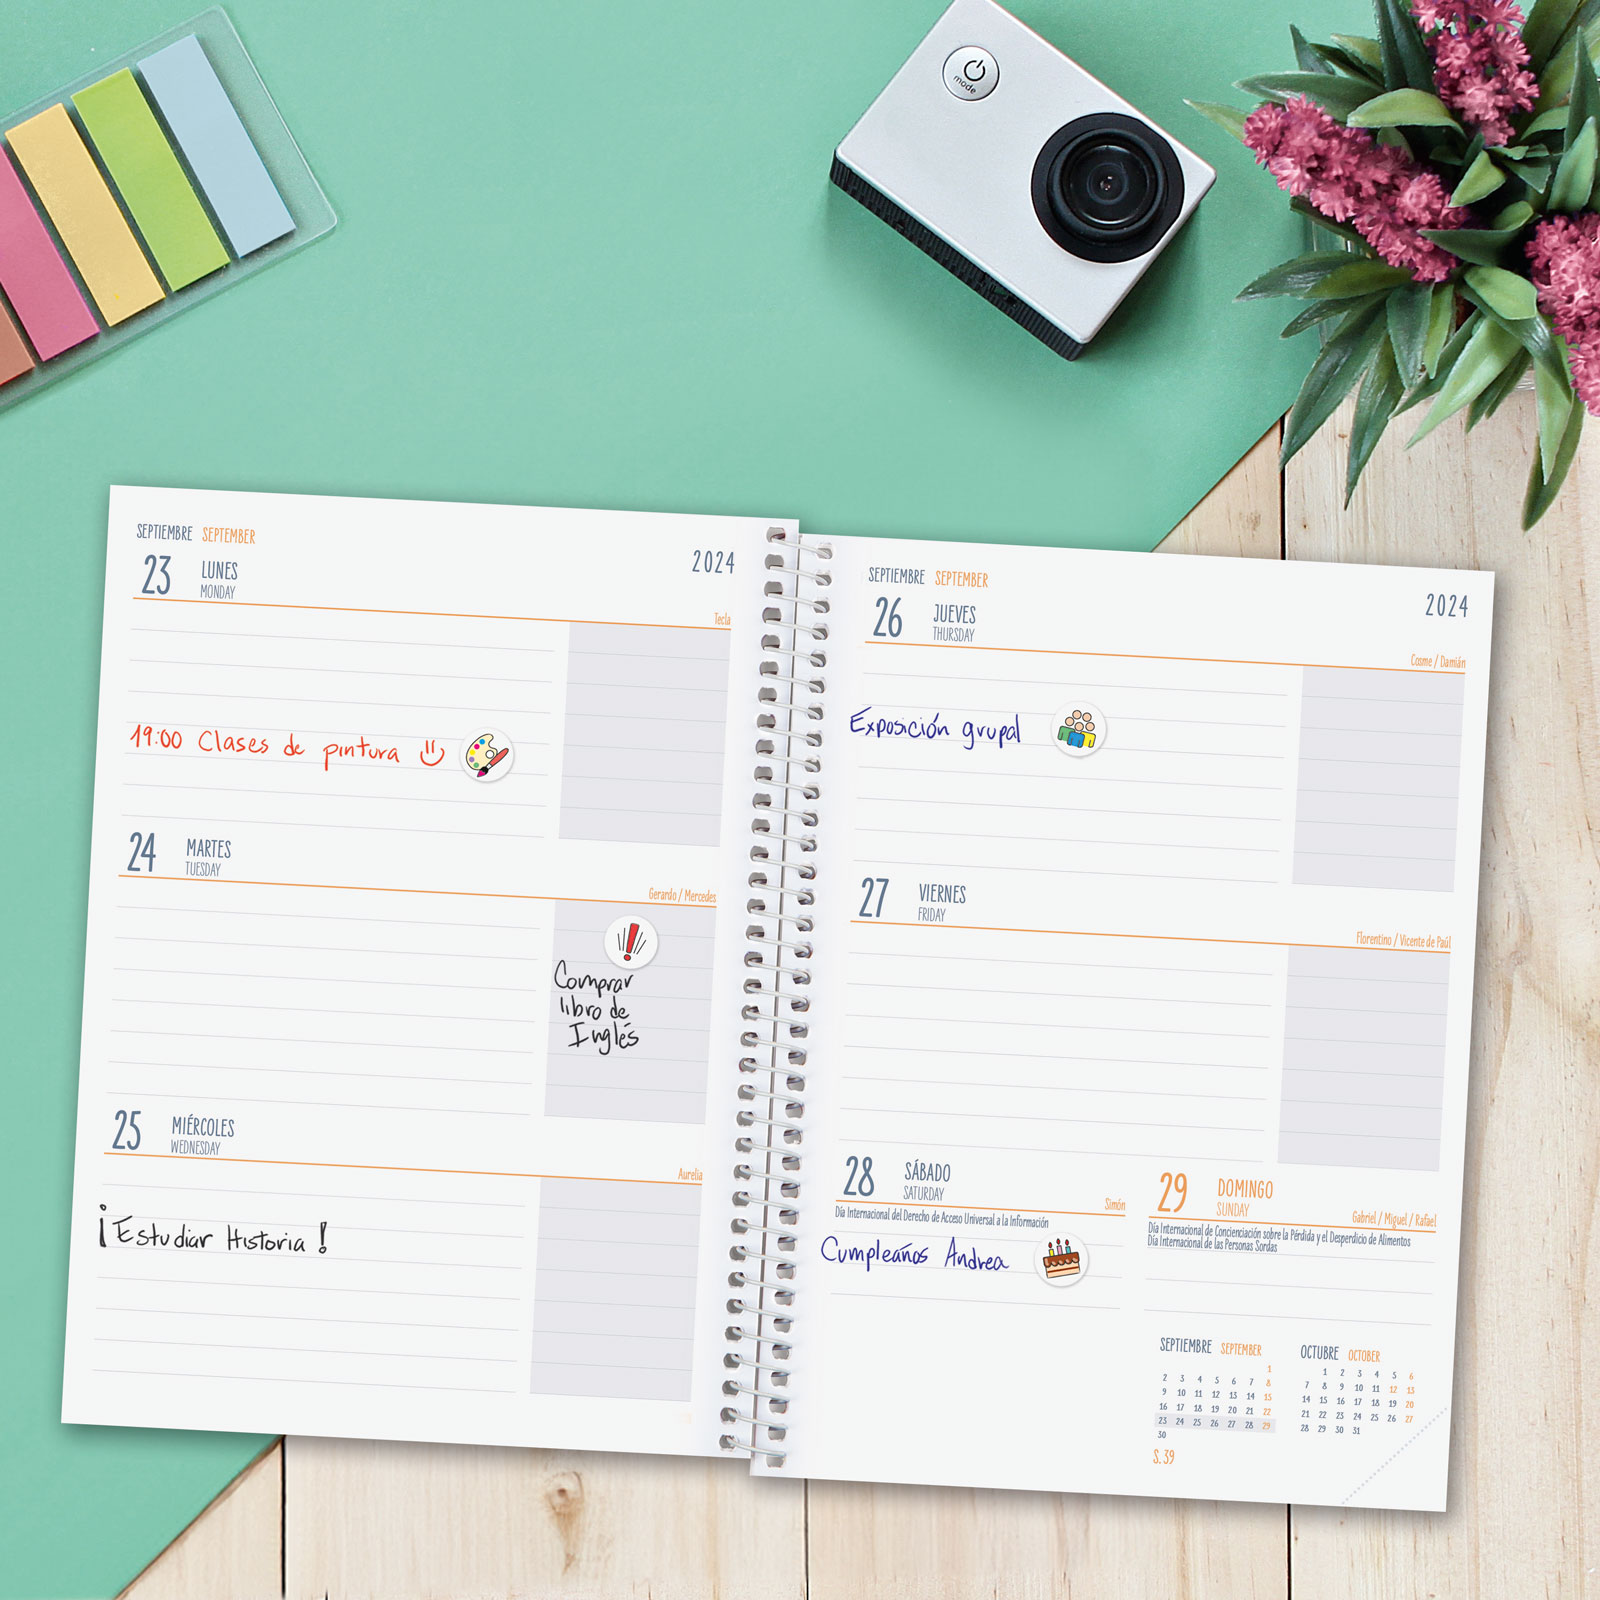 mode
SEPTIEMBRE SEPTEMBER
2024
23 LUNES
MONDAY
Tecla
19:00 Clases de pintura
24 MARTES
TUESDAY
Gerardo / Mercedes
Comprar
libro de
Inglés
25 MIÉRCOLES
WEDNESDAY
Aurelia
¡Estudiar Historia!
SEPTIEMBRE SEPTEMBER
2024
26 JUEVES
THURSDAY
Cosme / Damián
Exposición grupal
27 VIERNES
FRIDAY
Florentino / Vicente de Paúl
28 SÁBADO
SATURDAY
Simón
Día Internacional del Derecho de Acceso Universal a la Información
Cumpleaños Andrea
29 DOMINGO
SUNDAY
Gabriel / Miguel / Rafael
Día Internacional de Concienciación sobre la Pérdida y el Desperdicio de Alimentos
Día Internacional de las Personas Sordas
SEPTIEMBRE SEPTEMBER
1
2 3 4 5 6 7 8
9 10 11 12 13 14 15
16 17 18 19 20 21 22
23 24 25 26 27 28 29
30
S. 39
OCTUBRE OCTOBER
1 2 3 4 5 6
7 8 9 10 11 12 13
14 15 16 17 18 19 20
21 22 23 24 25 26 27
28 29 30 31